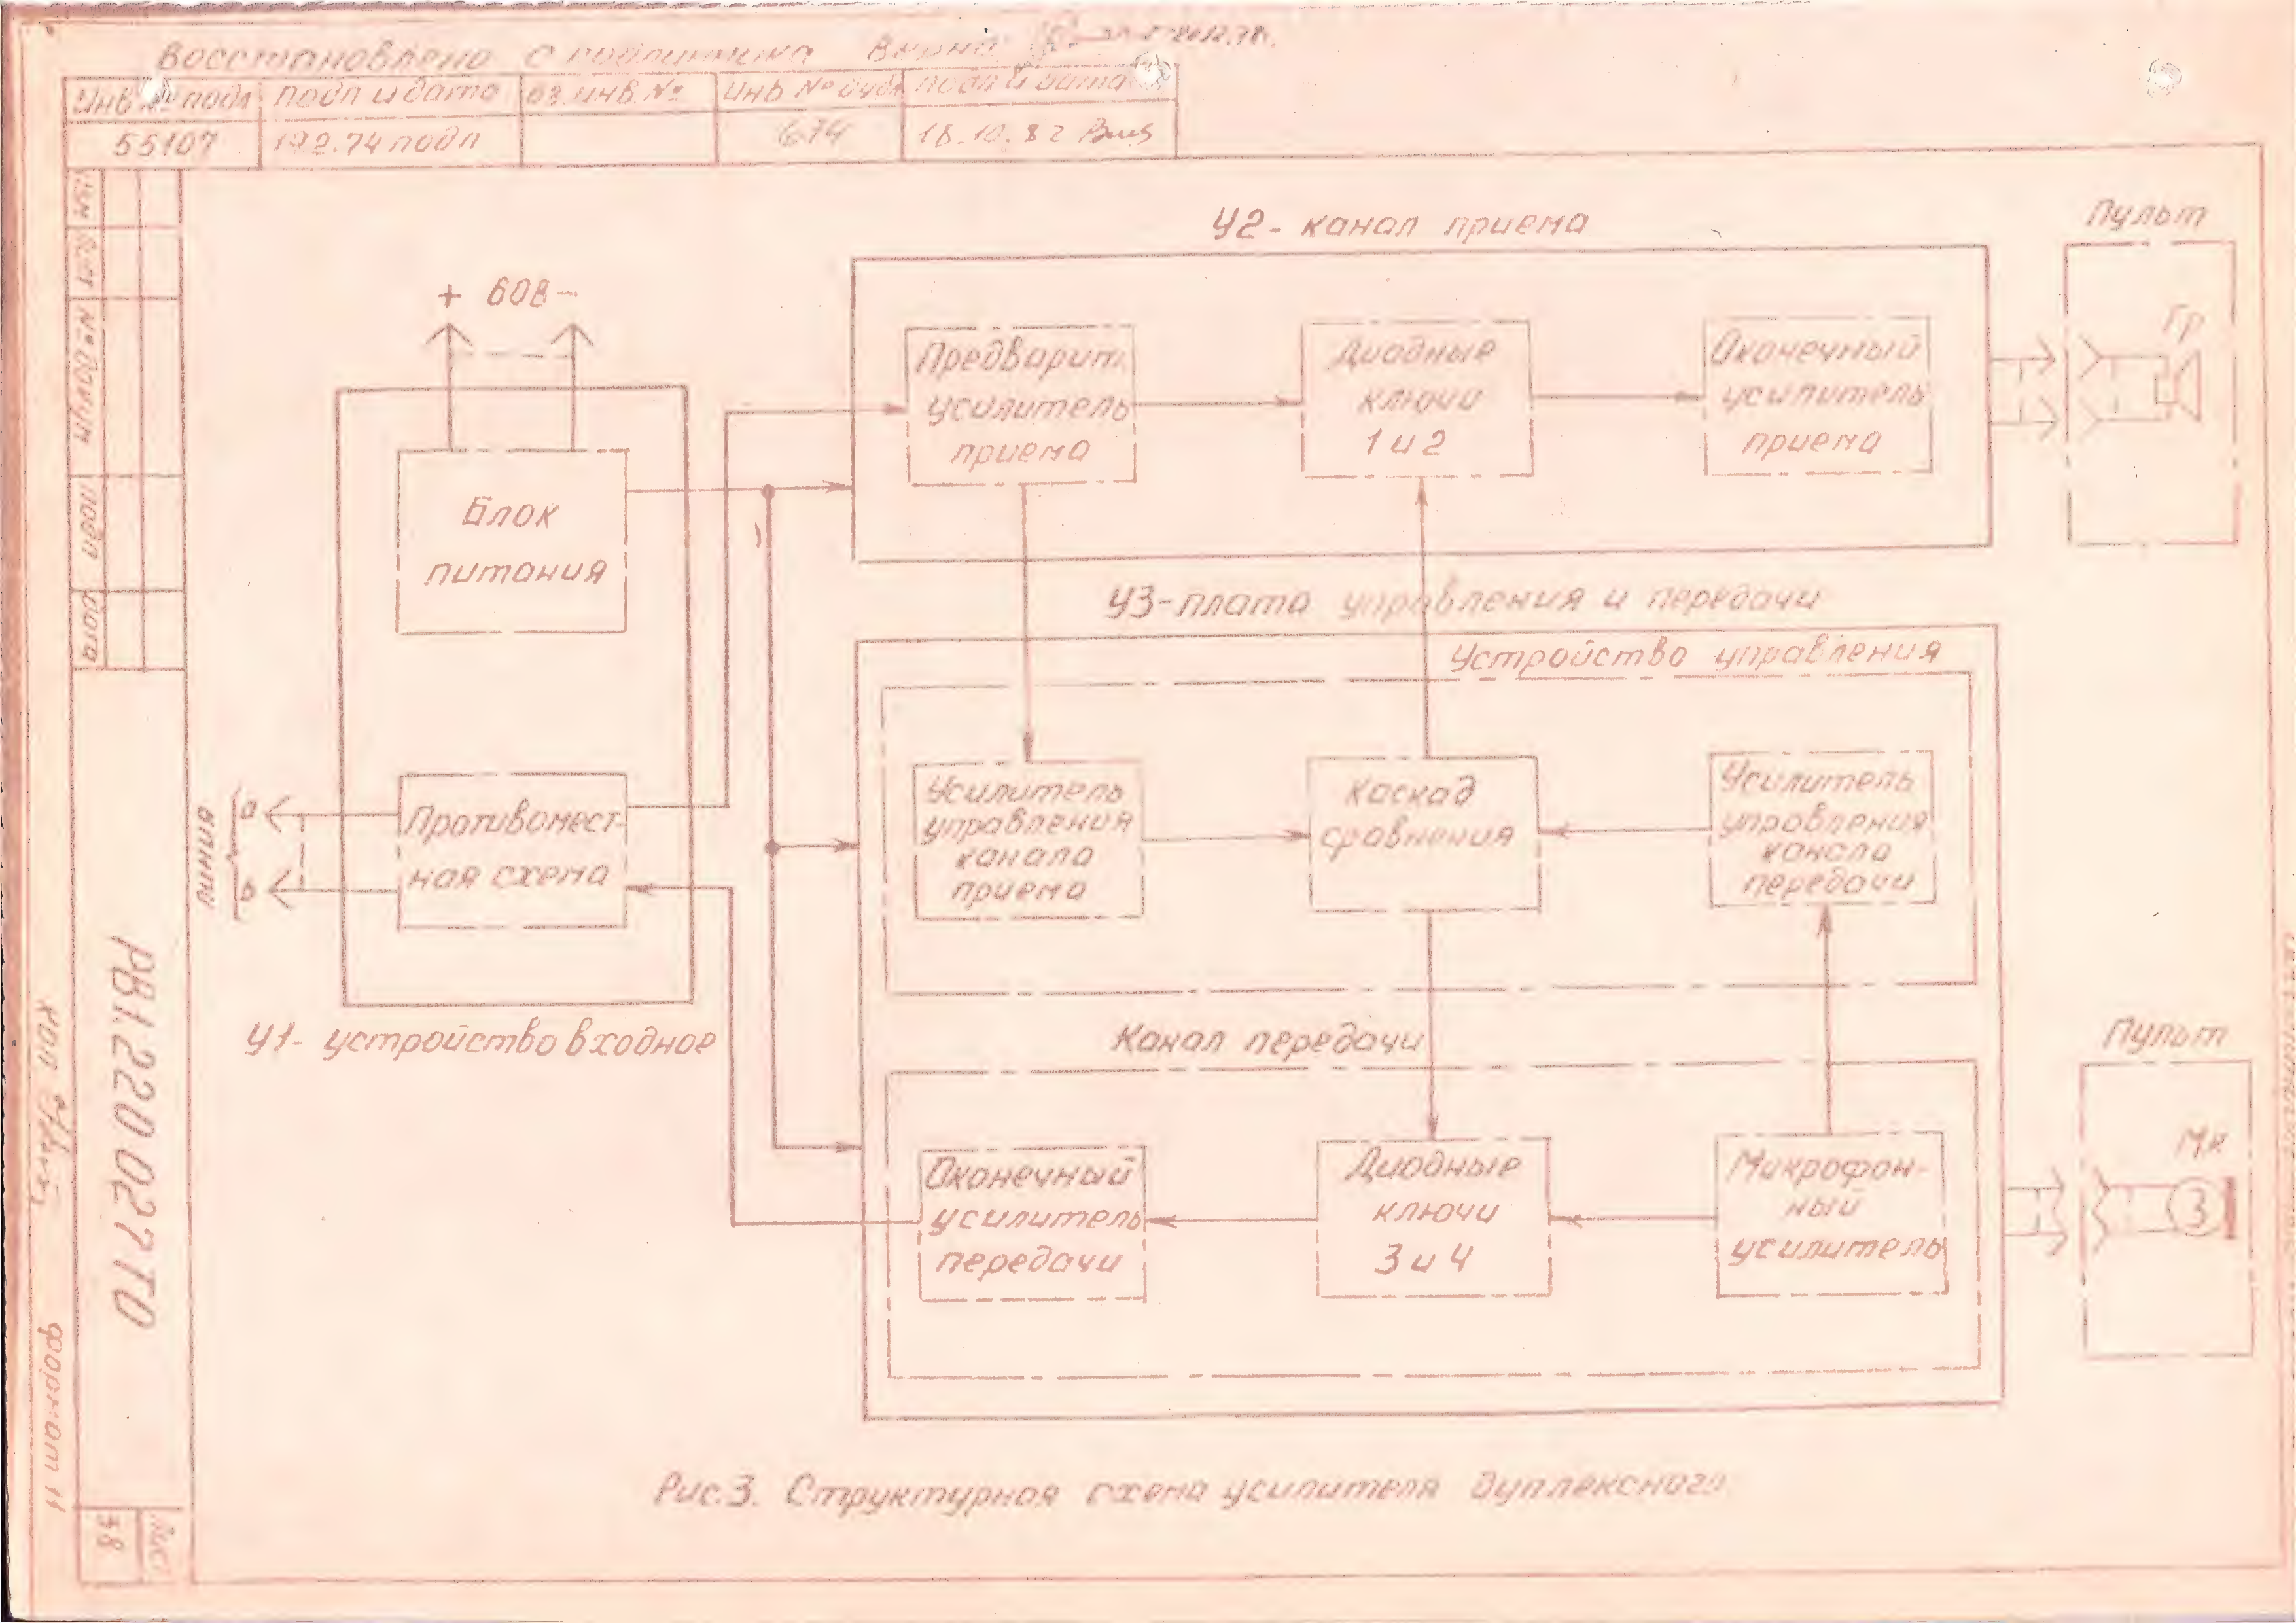 Восстановлено с подлинника Верно:
Инв. № подл Подп и дата вз. инв. № Инв № дубл Подп и дата
55107 19.2.74 подп 674 18.10.82
У2- канал приема
Пульт
+ 60В -
Гр
Предварит.
усилитель
приема
Диодные
ключи
1 и 2
Оконечный
усилитель
приема
Блок
питания
У3-плата управления и передачи
Устройство управления
Усилитель
управления
канала
приема
Каскад
сравнения
Усилитель
управления
канала
передачи
линия
а
Противомест-
ная схема
в
У1- устройство входное
Канал передачи
Пульт
Мк
Оконечный
усилитель
передачи
Диодные
ключи
3 и 4
Микрофон-
ный
усилитель
Рис.3. Структурная схема усилителя дуплексного
№ докум
подп
дата
РВ1.220.027ТО
коп
формат 11
Лист
38